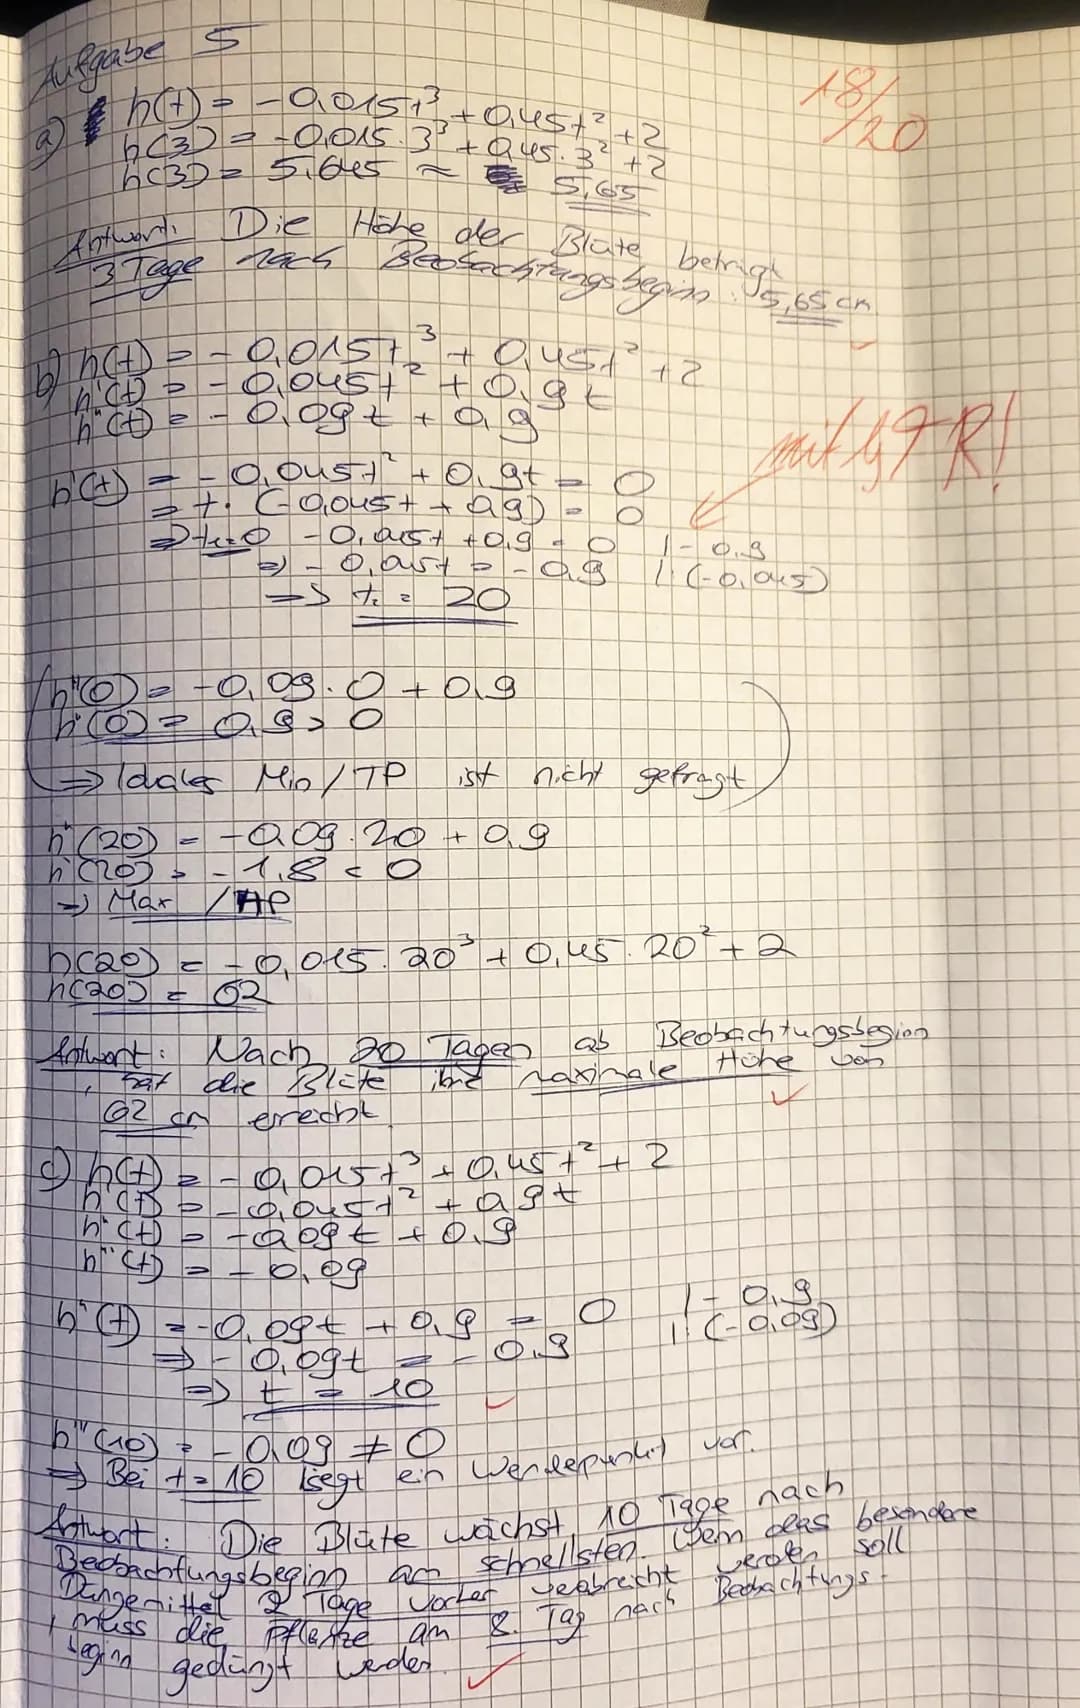 Aufgabe 5
18/20
a) h(t) = -0,015t³ + 0,45t² + 2
h(3) = -0,015 · 3³ + 0,45 · 3² + 2
h(3) = 5,645 ≈ 5,65
Antwort: Die Höhe der Blüte beträgt
3 Tage nach Beobachtungsbeginn 5,65 cm
b) h(t) = -0,015t³ + 0,45t² + 2
h'(t) = -0,045t² + 0,9t
h''(t) = -0,09t + 0,9
mit GTR!
h'(t) = -0,045t² + 0,9t = 0
= t · (-0,045t + 0,9) = 0
⇒ t₁=0 -0,045t + 0,9 = 0 | - 0,9
⇒ -0,045t = -0,9 | : (-0,045)
⇒ t₂ = 20
h''(0) = -0,09 · 0 + 0,9
h''(0) = 0,9 > 0
⇒ lokales Min / TP ist nicht gefragt
h''(20) = -0,09 · 20 + 0,9
h''(20) = -1,8 < 0
⇒ Max / HP
h(20) = -0,015 · 20³ + 0,45 · 20² + 2
h(20) = 62
Antwort: Nach 20 Tagen ab Beobachtungsbeginn
hat die Blüte ihre maximale Höhe von
62 cm erreicht
c) h(t) = -0,015t³ + 0,45t² + 2
h'(t) = -0,045t² + 0,9t
h''(t) = -0,09t + 0,9
h'''(t) = -0,09
h''(t) = -0,09t + 0,9 = 0 | - 0,9
⇒ -0,09t = -0,9 | : (-0,09)
⇒ t = 10
h'''(10) = -0,09 ≠ 0
⇒ Bei t = 10 liegt ein Wendepunkt vor.
Antwort: Die Blüte wächst 10 Tage nach
Beobachtungsbeginn am schnellsten. Wenn das besondere
Düngemittel 2 Tage vorher verabreicht werden soll
, muss die Pflanze am 8. Tag nach Beobachtungs-
beginn gedüngt werden.